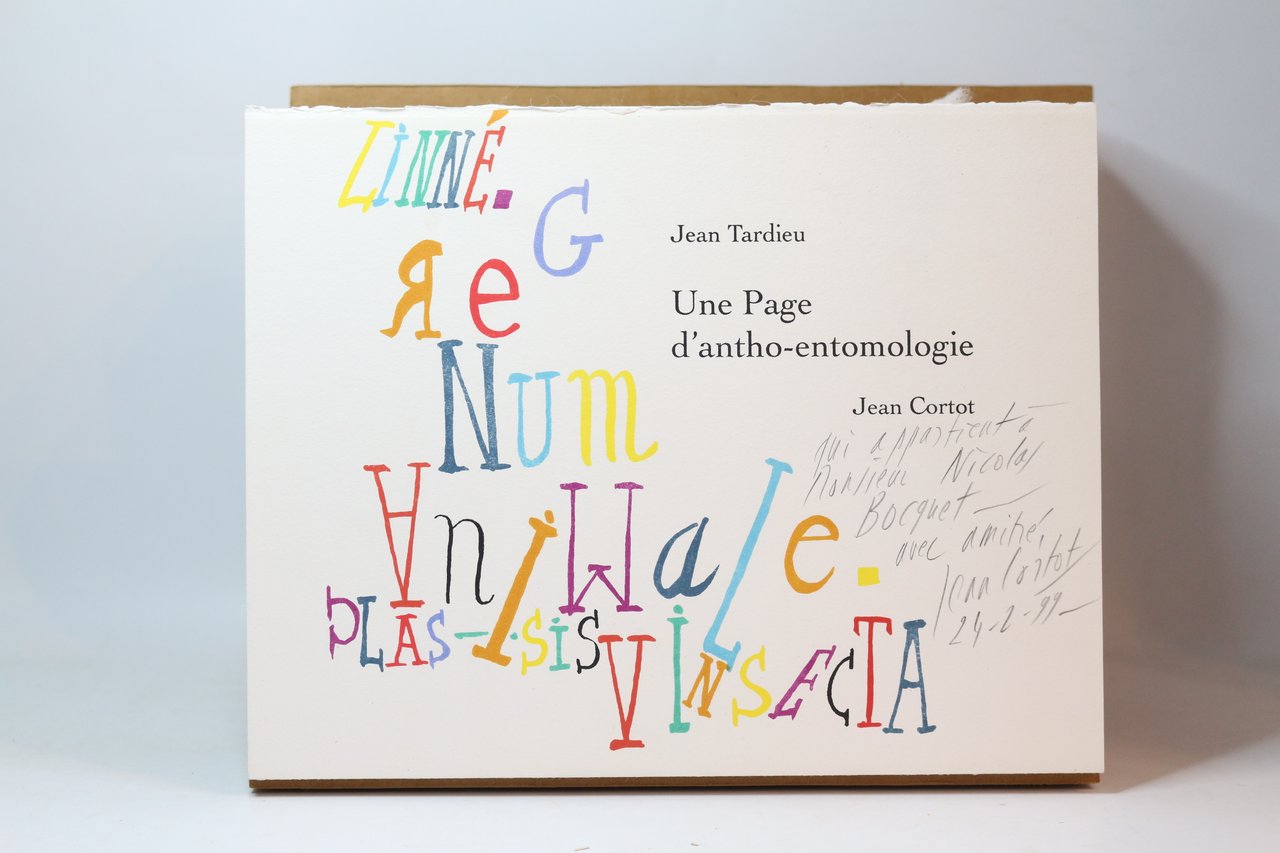 LiNNÉ.
ReG
Num
AniMale.
CLAS-SiS
V INSECTA
Jean Tardieu
Une Page
d'antho-entomologie
Jean Cortot
qui appartient à
Monsieur Nicolas
Bocquet —
avec amitié,
Jean Cortot
24-2-99-